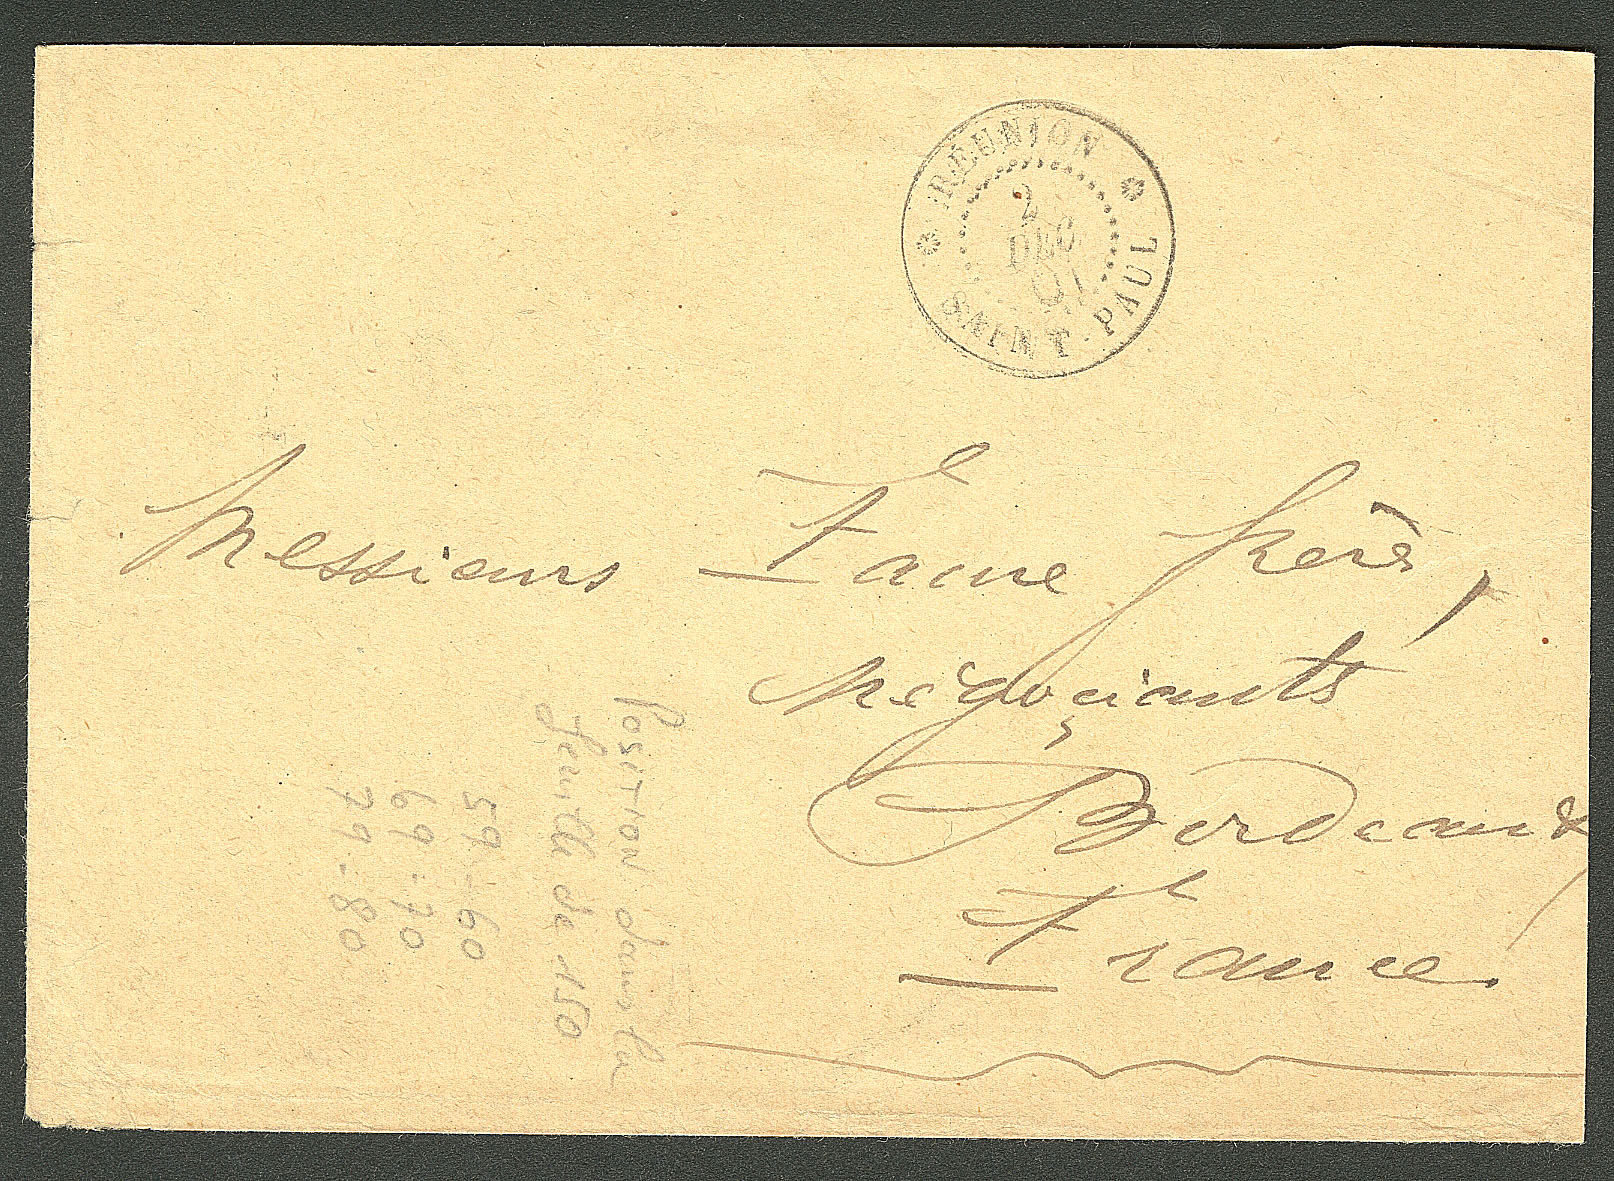 RÉUNION
2
DEC
01
SAINT-PAUL
Messieurs Faure frères,
Négoçiants
Bordeaux
France.
Position dans la
feuille de 150
59-60
69-70
79-80